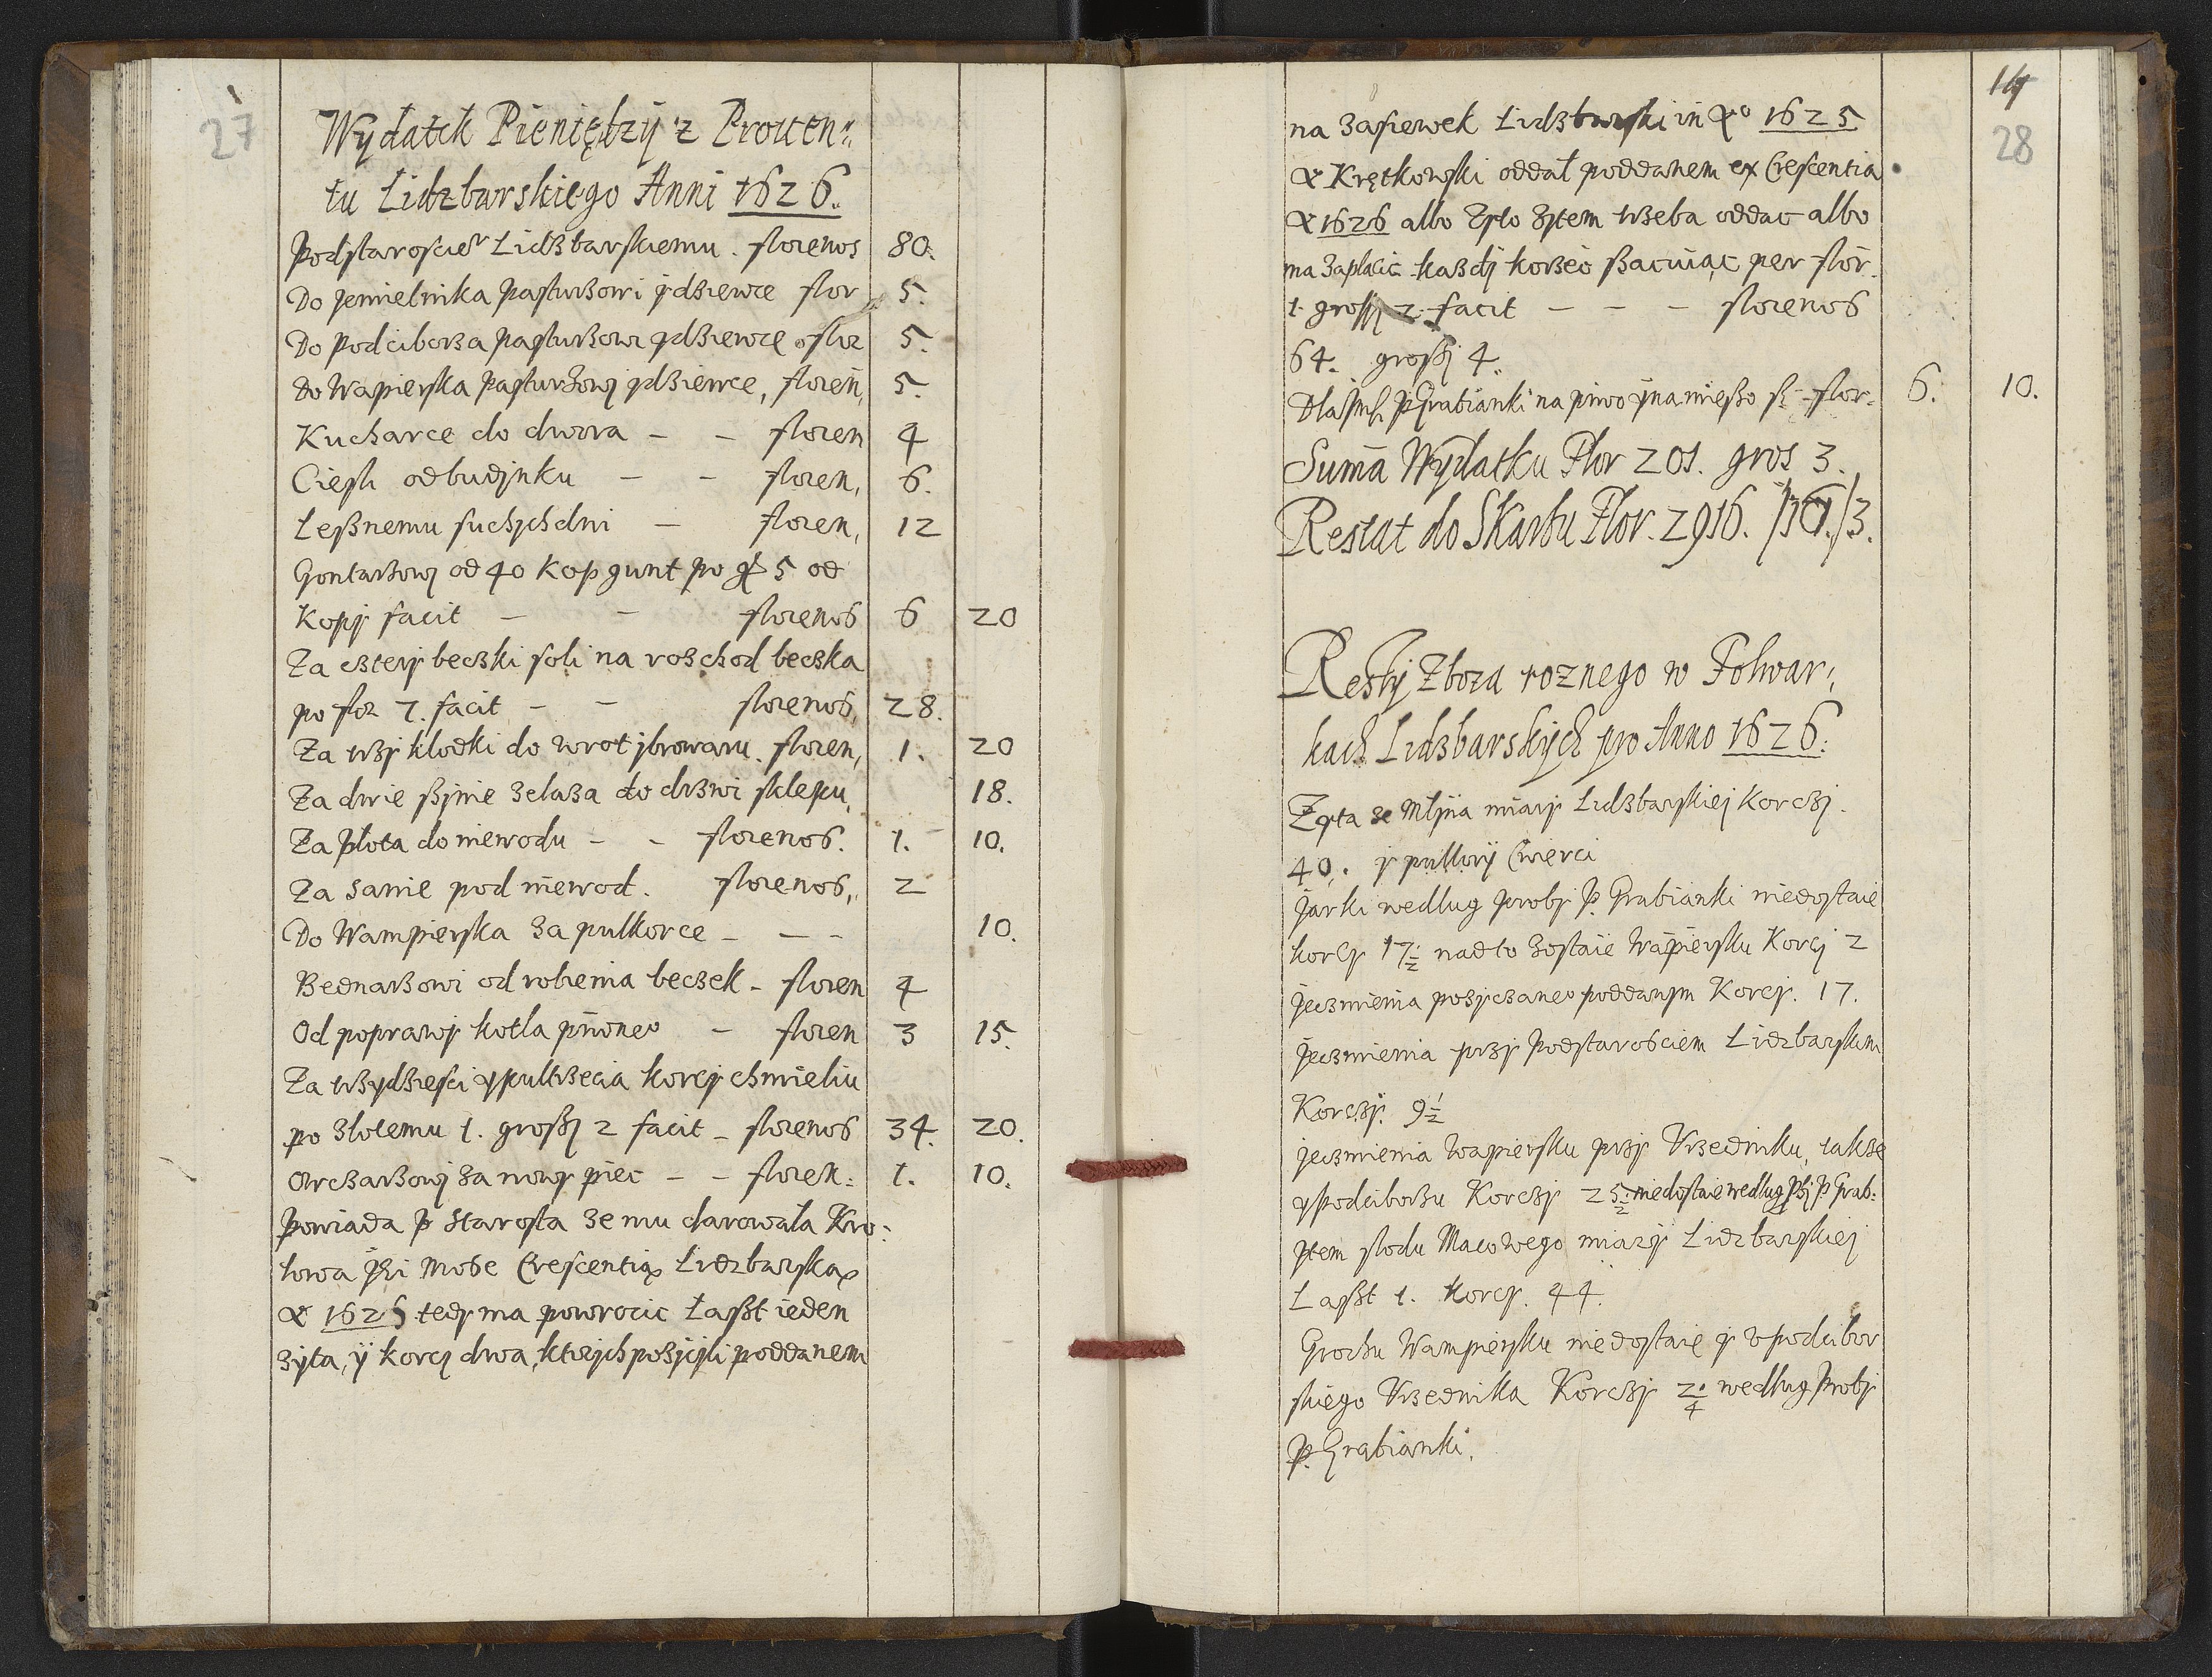 27
Wydatek Pieniędzy z Prouen„
tu Lidzbarskiego Anni 1626.
Podstarosciemu Lidzbarskiemu. florenos 80.
Do Jemielnika Pasturzowi y dziewce flor 5.
Do Podciborza pasturzowi y dziewce flor 5.
do Wapierska Pasturzowi y dziewce, floren, 5.
Kucharce do dwora - - floren 4
Ciesli od budynku - - floren, 6.
Leśnemu suchychdni - floren, 12
Gontarzowi od 40 kop gunt po gr 5 od
Kopy facit - - florenos 6 20
Za cztery beczki soli na rozchod beczka
po flor 7. facit - - florenos, 28.
Za trzy klodki do wrot y browaru. floren, 1. 20
Za dwie szynie zelaza do drzwi sklepu, 18.
Za plota do niewodu - - florenos. 1. 10.
Za sanie pod niewod. florenos, 2
Do Wampierska za pulkorce - - - 10.
Bednarzowi od robienia beczek - floren 4
Od poprawy kotla piwneo - floren 3 15.
Za trzydziesci y pultrzecia korcy chmieliu
po zlotemu 1. groszy 2 facit - florenos 34. 20.
Owczarzowi za nowy piec - - floren: 1. 10.
Powiada P Starosta ze mu darowala Kro:
lowa Jei Mosc Crescentią Lidzbarską
A° 1625 tedy ma powrocic Łaszt ieden
zyta, y korcy dwa, ktorych pozyczyli poddanem
14
28
na zasiewek Lidzbarski in A° 1625
A Krętkowski oddał poddanem ex Crescentia
A° 1626 albo Zyto Zytem trzeba oddac albo
ma zaplacic kazdy korzec szacuiąc per flor.
1. groszy 2. facit - - - florenos
64. groszy 4.
Dla P Grabianki na piwo y na mięso flor. 6. 10.
Suma Wydatku Flor 201. gros 3.
Restat do Skarbu Flor. 2916. /3.
Resty Zboza roznego w Folwar,,
kach Lidzbarskych pro Anno 1626.
Zyta ze Mlyna miary Lidzbarskiej Korczy.
40. y pultory Cwierci
Jarki wedlug proby P. Grabianki niedostaie
korcy 17 1/2 nadto zostaie Wapiersku Korcy 2
Jeczmienia pozyczaneo poddanym Korcy. 17.
Jeczmienia przy Podstarosciem Lidzbarskim
Korczy. 9 1/2
Jeczmienia Wapiersku przy Vrzedniku, takze
y Podciborzu Korczy 25 1/2 niedostaie wedlug P Grab:
Jtem slodu Macowego miary Lidzbarskiej
Laszt 1. Korcy. 44.
Grochu Wampiersku niedostaie y v podcibor
skiego Vrzednika Korczy wedlug Proby
P. Grabianki.